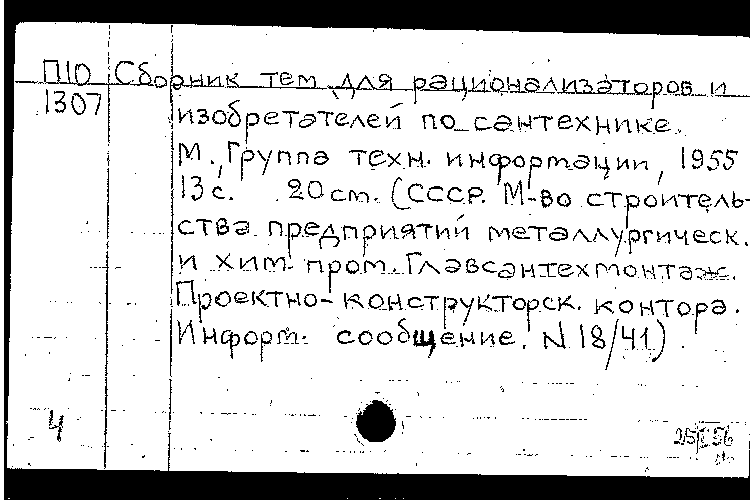 П10 Сборник тем для рационализаторов и
1307 изобретателей по сантехнике.
М., Группа техн. информации, 1955
13с. 20cm. (СССР. М-во строитель-
ства предприятий металлургическ.
и хим. пром. Главсантехмонтаж.
Проектно-конструкторск. контора.
Информ. сообщение. N 18/41).
4